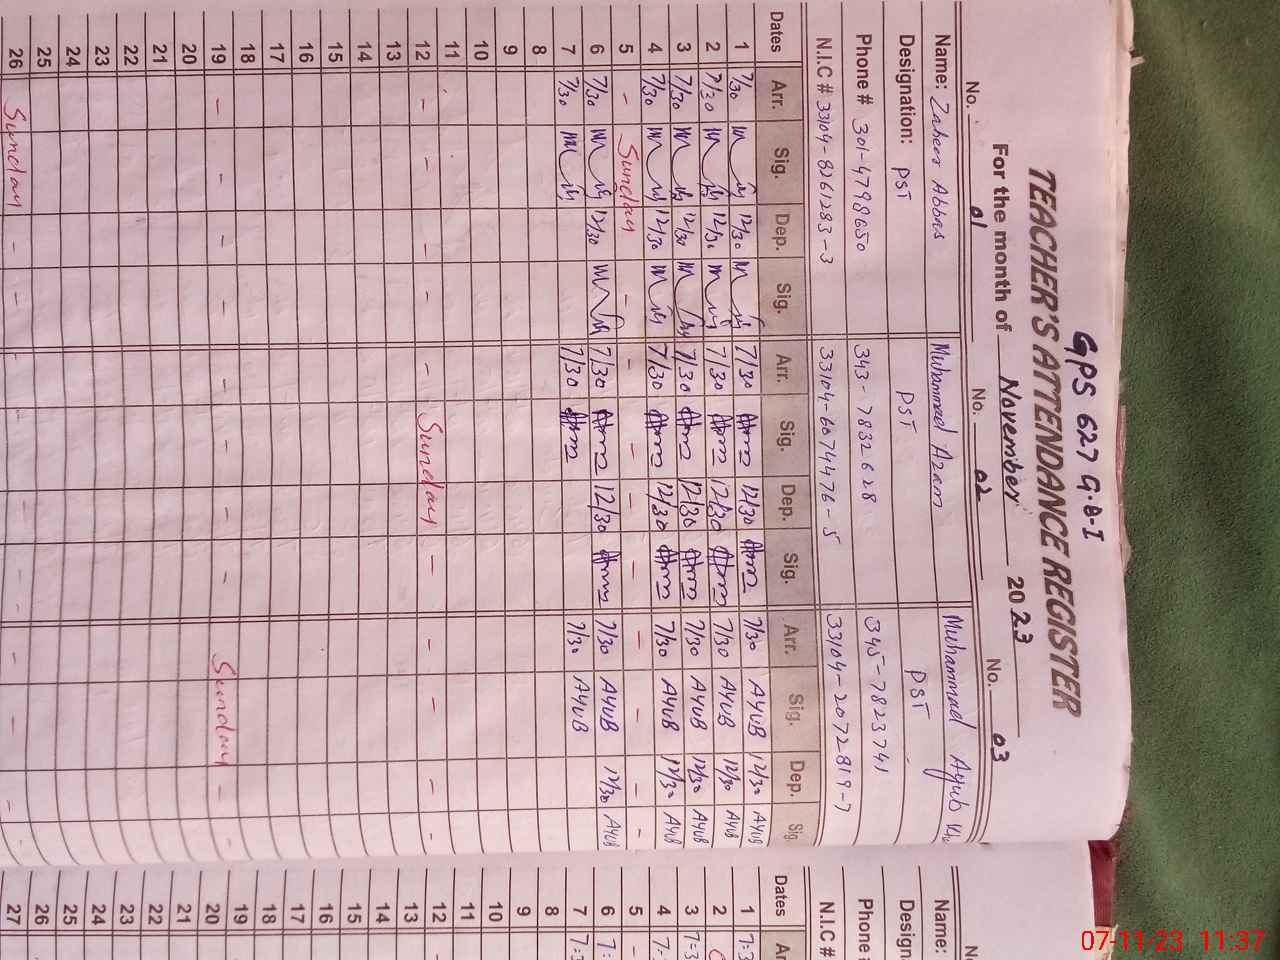 GPS 627 G.B-I
TEACHER'S ATTENDANCE REGISTER
For the month of November 2023
No. 01 No. 02 No. 03
Name: Zaheer Abbas Muhammad Azam Muhammad Ayub
Designation: PST PST PST
Phone # 301-4798650 343-7832628 345-7823741
N.I.C # 33104-8261283-3 33104-6074476-5 33104-2072819-7
Dates Arr. Sig. Dep. Sig. Arr. Sig. Dep. Sig. Arr. Sig. Dep. Sig.
1 7/30 12/30 7/30 12/30 7/30 AYUB 12/30 AYUB
2 7/30 12/30 7/30 12/30 7/30 AYUB 12/30 AYUB
3 7/30 12/30 7/30 12/30 7/30 AYUB 12/30 AYUB
4 7/30 12/30 7/30 12/30 7/30 AYUB 12/30 AYUB
5 - Sunday - - - - - - - - -
6 7/30 12/30 7/30 12/30 7/30 AYUB 12/30 AYUB
7 7/30 7/30 7/30 AYUB
8
9
10
11
12 - - - - - Sunday - - - - -
13
14
15
16
17
18
19 - - - - - - - Sunday - -
20
21
22
23
24
25
26 Sunday - - - - - - - - -
Name:
Designa
Phone #
N.I.C #
Dates
1
2
3
4
5
6
7
8
9
10
11
12
13
14
15
16
17
18
19
20
21
22
23
24
25
26
27
07-11-23 11:37